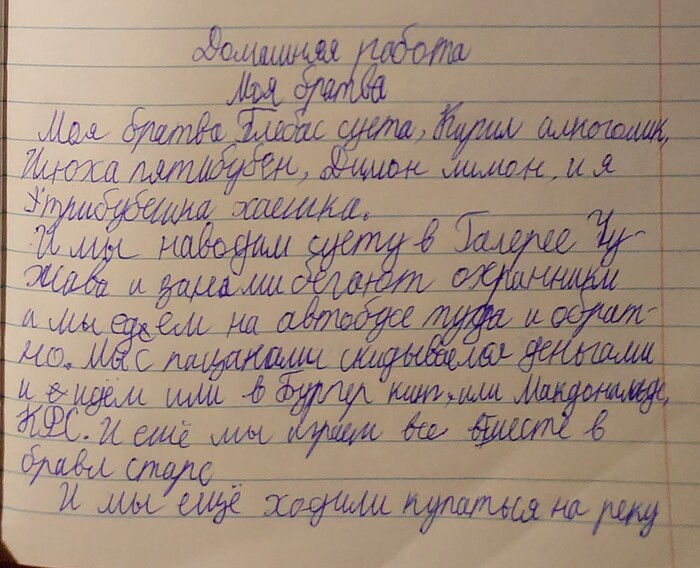 Домашняя работа
Моя братва
Моя братва Глебас суета, Кирил алкоголик,
Илюха пятибубен, Димон лимон, и я
трибубешка хаешка.
И мы наводим суету в Галерее Чи-
жава и занами бегают охранники
и мы едем на автобусе туда и обрат-
но. Мы с пацанами скидываемся деньгами
и идём или в Бургер кинг, или Макдональдс,
КФС. И ещё мы играем все вместе в
бравл старс
И мы ещё ходили купаться на реку